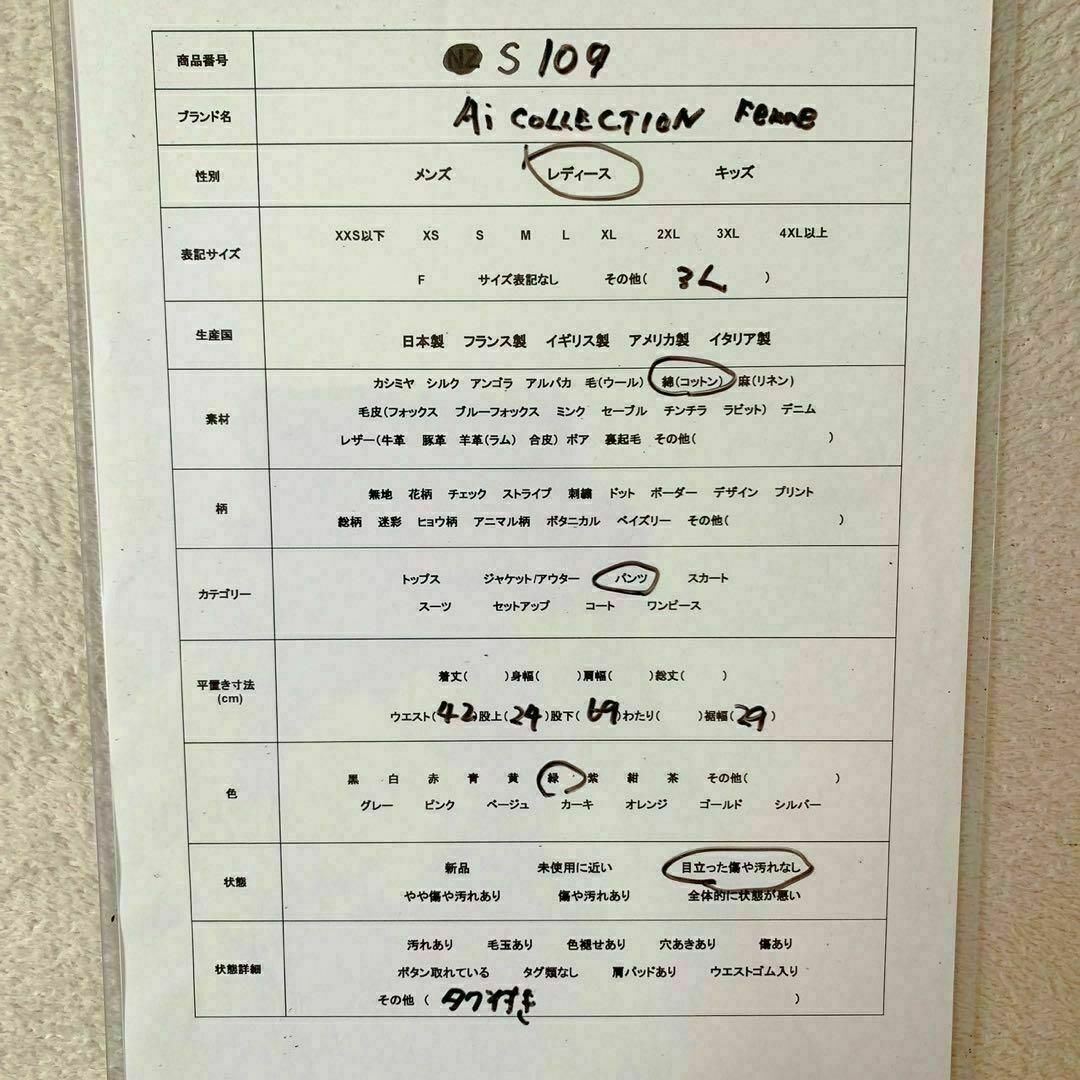 商品番号 NZ S 109
ブランド名 Ai COLLECTION Femme
性別 メンズ レディース キッズ
XXS以下 XS S M L XL 2XL 3XL 4XL以上
表記サイズ
F サイズ表記なし その他( 3L )
生産国 日本製 フランス製 イギリス製 アメリカ製 イタリア製
カシミヤ シルク アンゴラ アルパカ 毛(ウール) 綿(コットン) 麻(リネン)
素材 毛皮(フォックス ブルーフォックス ミンク セーブル チンチラ ラビット) デニム
レザー(牛革 豚革 羊革(ラム) 合皮) ボア 裏起毛 その他( )
無地 花柄 チェック ストライプ 刺繍 ドット ボーダー デザイン プリント
柄
総柄 迷彩 ヒョウ柄 アニマル柄 ボタニカル ペイズリー その他( )
トップス ジャケット/アウター パンツ スカート
カテゴリー
スーツ セットアップ コート ワンピース
着丈( )身幅( )肩幅( )総丈( )
平置き寸法
(cm)
ウエスト(42)股上(24)股下(69)わたり( )裾幅(29)
黒 白 赤 青 黄 緑 紫 紺 茶 その他( )
色
グレー ピンク ベージュ カーキ オレンジ ゴールド シルバー
新品 未使用に近い 目立った傷や汚れなし
状態
やや傷や汚れあり 傷や汚れあり 全体的に状態が悪い
汚れあり 毛玉あり 色褪せあり 穴あきあり 傷あり
状態詳細 ボタン取れている タグ類なし 肩パッドあり ウエストゴム入り
その他 ( )